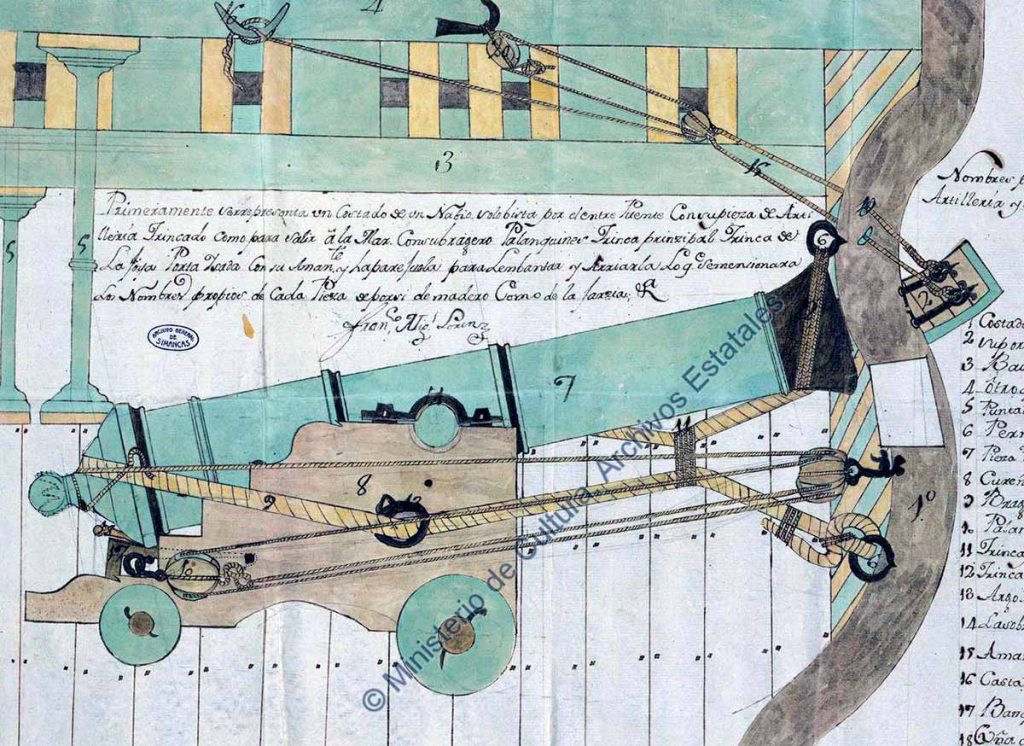 Primeramente se rrepresenta un Costado de un Nabio, solo bista, por el entre Puente Con su pieza de Arti
lleria Trincado Como para Salir â la Mar. Con su braguero Palanquines Trinca prinzipal Trinca de
La Joya Porta Izada Con su Aman.te y Aparejuelo para Lebantar y Arriarla Lo q.e se mensionara
Los Nombres propios de Cada Pieza de por si de madero Como de la Jarzia;
Fran.co Mig.l Lorenz
ARCHIVO GENERAL
DE
SIMANCAS
© Ministerio de Cultura. Archivos Estatales
Nombres
Artilleria y
1 Costado
2
3
4 otro
5 Punta
6 Pern
7 Pieza
8 Cureñ
9 Brag
10 Palan
11 Trinca
12 Trinca
13 Argo
14
15 Aman
16 Casta
17 Banq
18 Cuña
16
4
3
5
5
15
10
2
6
7
11
8
9
12
10
6